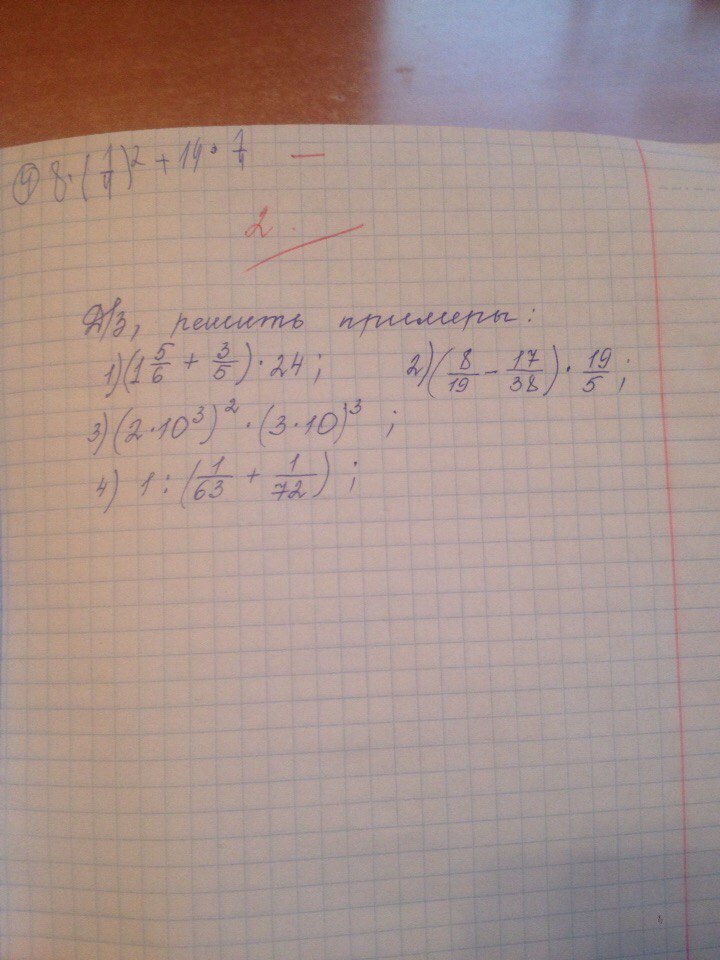 9) 8·(1/4)² + 14·1/4 —
2.
Д/З, решить примеры:
1) (1 5/6 + 3/5)·24; 2) (8/19 − 17/38)·19/5;
3) (2·10³)²·(3·10)³;
4) 1:(1/63 + 1/72);